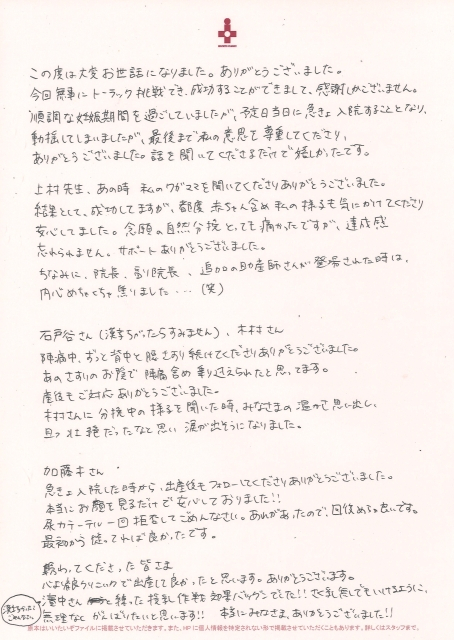 この度は大変お世話になりました。ありがとうございました。
今回無事にトーラック挑戦でき、成功することができまして、感謝しかございません。
順調な妊娠期間を過ごしていましたが、予定日当日に急きょ入院することとなり、
動揺してしまいましたが、最後まで私の意思を尊重してくださり、
ありがとうございました。話を聞いてくださるだけで嬉しかったです。
上村先生、あの時 私のワガママを聞いてくださりありがとうございました。
結果として、成功してますが、都度 赤ちゃん含め私の様子も気にかけてくださり
安心してました。念願の自然分娩とっても痛かったですが、達成感
忘れられません。サポートありがとうございました。
ちなみに、院長、副院長、追加の助産師さんが登場された時は、
内心めちゃくちゃ焦りました…(笑)
石戸谷さん(漢字ちがったらすみません)、木村さん
陣痛中、ずっと背中と腸さすり続けてくださりありがとうございました。
あのさすりのお陰で 陣痛含め乗り越えられたと思ってます。
産後もご対応ありがとうございました。
木村さんに分娩中の様子を聞いた時、みなさまの温かさ思い出し、
且つ壮絶だったなと思い 涙が出そうになりました。
加藤木さん
急きょ入院した時から、出産後もフォローしてくださりありがとうございました。
本当にお顔を見るだけで安心しておりました!!
尿カテーテル一回拒否してごめんなさい。あれがあったので、回復めちゃ良いです。
最初から従ってれば良かったです。
携わってくださった皆さま
心から良クリニックで出産して良かったと思います。ありがとうございます。
濱中さんと練った授乳作戦 効果バツグンでした!!
無理なく がんばりたいと思います!! 本当にみなさま、ありがとうございました!!
漢字ちがったらごめんなさい。
原本はいいたいぞファイルに掲載させていただきます。また、HPに個人情報を特定されない形で掲載させていただくこともあります。詳しくはスタッフまで。